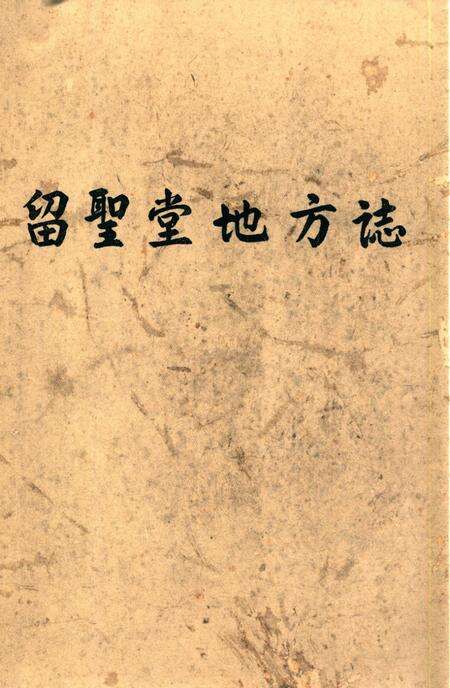 留聖堂地方誌